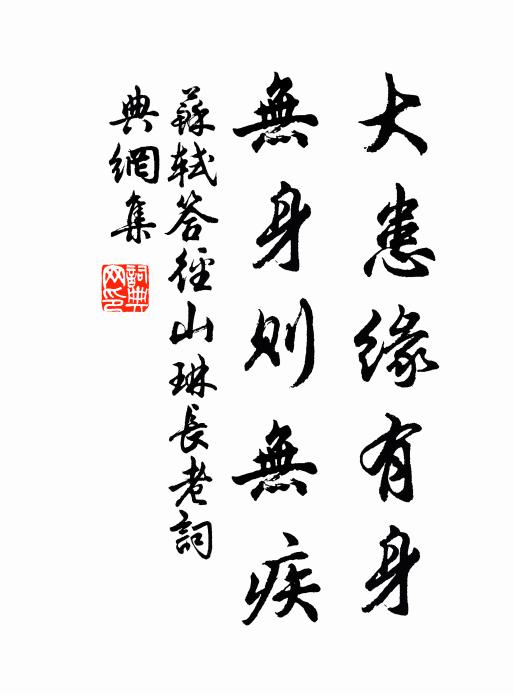 大患緣有身
無身則無疾
蘇軾答徑山琳長老詞
典網集
詞典網印